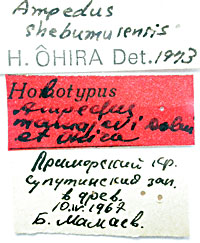 Ampedus
shebumurensis
H. ÔHIRA Det. 1973
Holotypus
Ampedus
mamajevi
et
Приморский кр.
Супутинский зап.
в древ.
1967
Б. Мамаев.